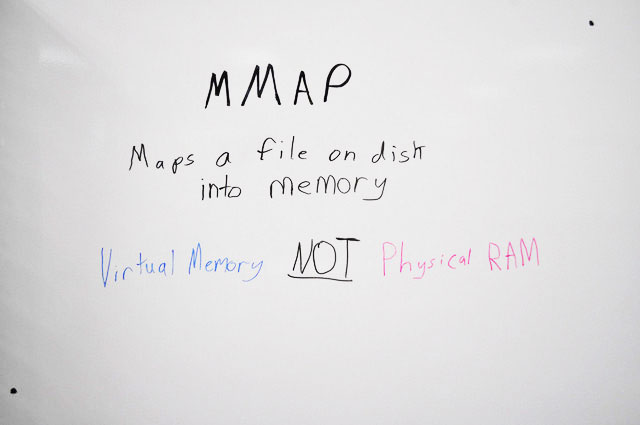 MMAP
Maps a file on disk
into memory
Virtual Memory NOT Physical RAM